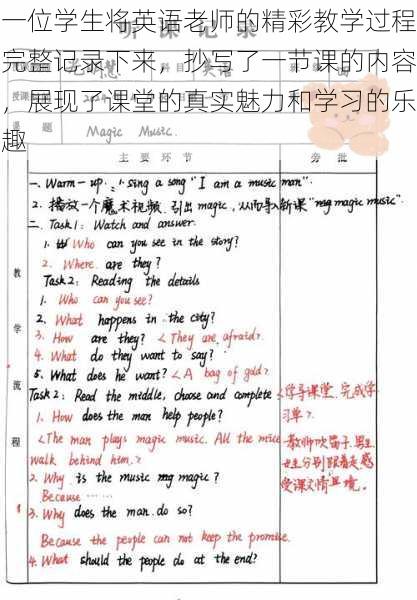 一位学生将英语老师的精彩教学过程
完整记录下来，抄写了一节课的内容
，展现了课堂的真实魅力和学习的乐
趣
听课记录
科目
英语
课题
Magic Music.
主要环节
旁批
教学流程
一. Warm-up: 1. sing a song "I am a music man".
2. 播放一个魔术视频, 引出magic, 从而导入新课"magic music".
二. Task1: Watch and answer.
1. Who can you see in the story?
2. Where are they?
Task2: Reading the details
1. Who can you see?
2. What happens in the city?
3. How are they? <They are afraid>.
4. What do they want to say?
5. What does he want? <A bag of gold>.
Task2: Read the middle, choose and complete
<学导课堂, 完成学
习单>.
1. How does the man help people?
<The man plays magic music. All the mice
walk behind him.>
教师吹笛子, 男生
女生分别跟着走感
受课文情境。
2. Why is the music magic?
Because ……
3. Why does the man do so?
Because the people can not keep the promise.
4. What should the people do at the end?